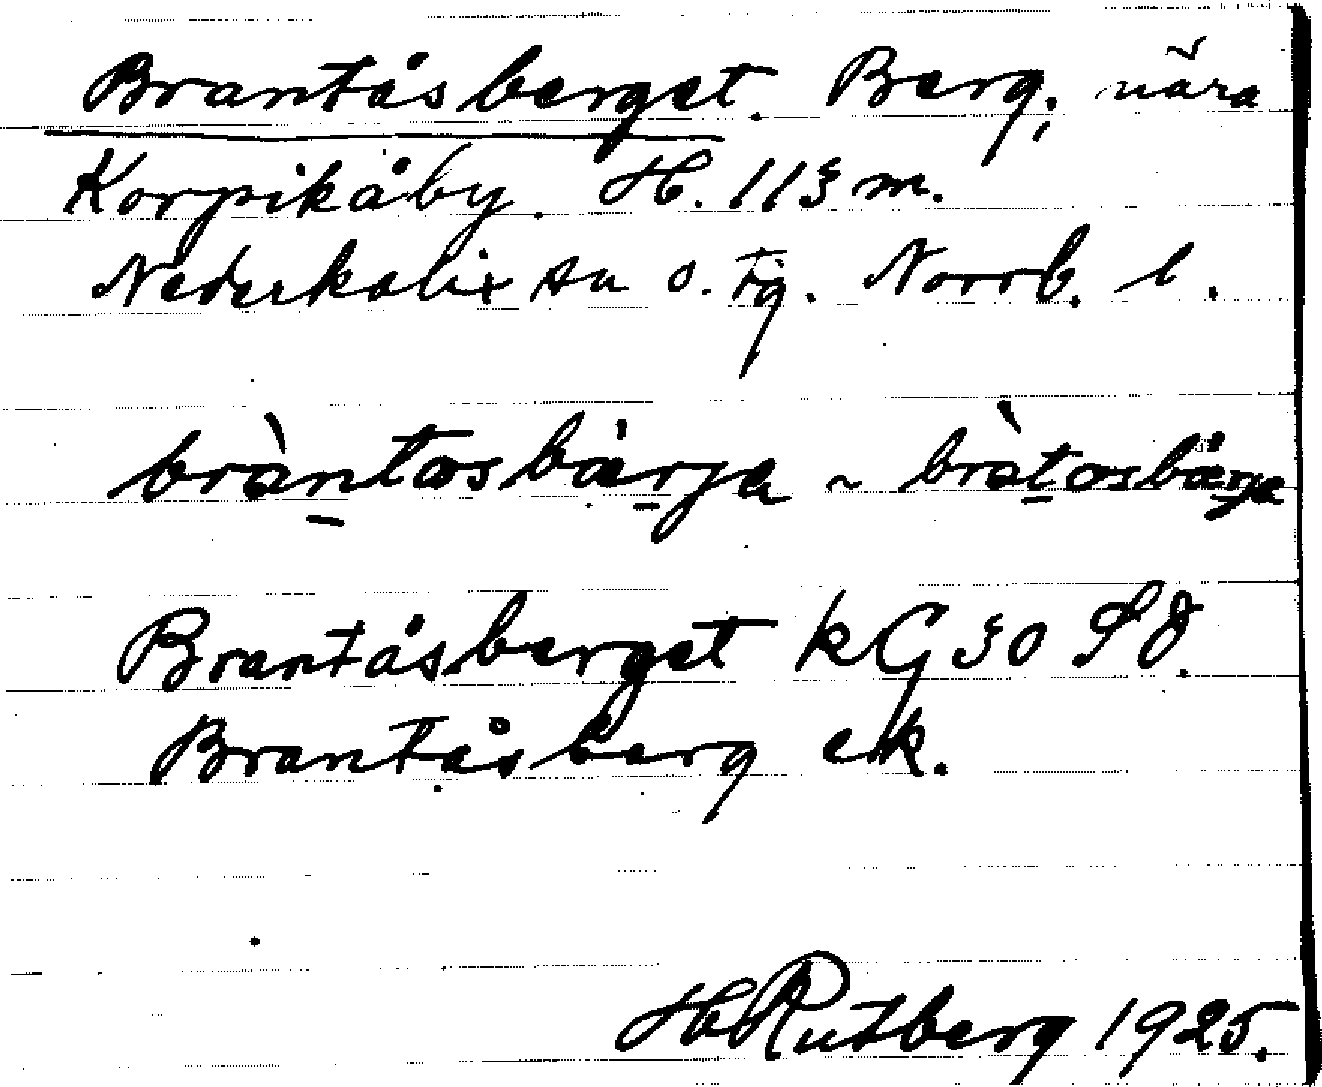 Brantåsberget. Berg, nära
Korpikåby. H. 113 m.
Nederkalix sn o. tg. Norrb. l.
bràntasbàrja ~ bràtasbärja
Brantåsberget kG 30 SÖ.
Brantåsberg ek.
H Rutberg 1925.